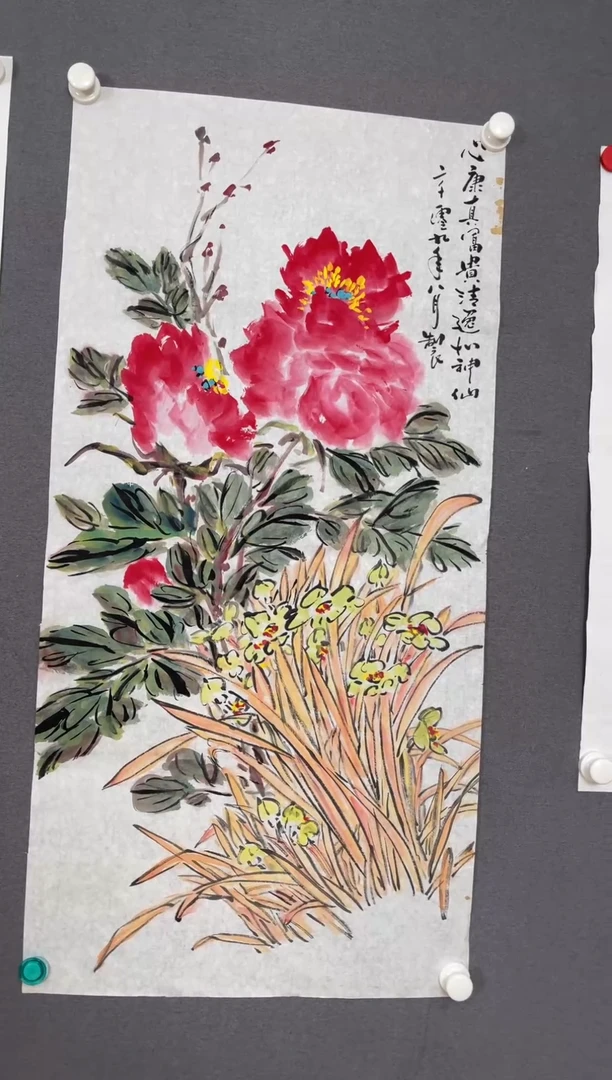 心康真富貴清逸如神仙
二千零九年八月製